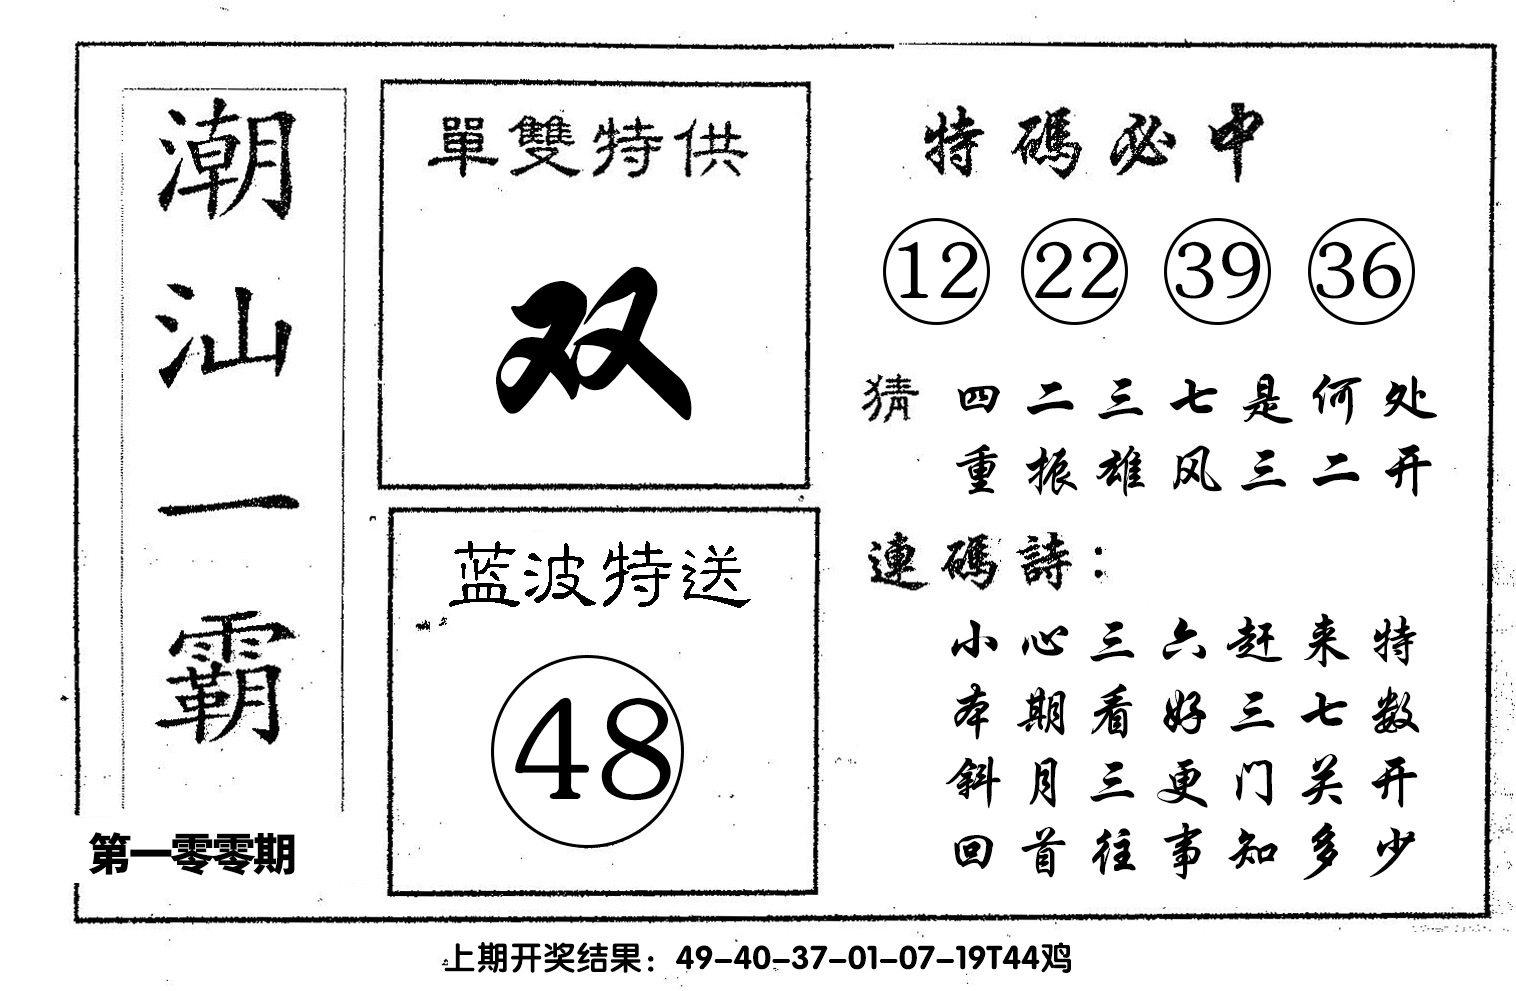 潮汕一霸
第一零零期
單雙特供
双
蓝波特送
48
特碼必中
12 22 39 36
猜 四二三七是何处
重振雄风三二开
連碼詩：
小心三六赶来特
本期看好三七数
斜月三更门关开
回首往事知多少
上期开奖结果：49-40-37-01-07-19T44鸡